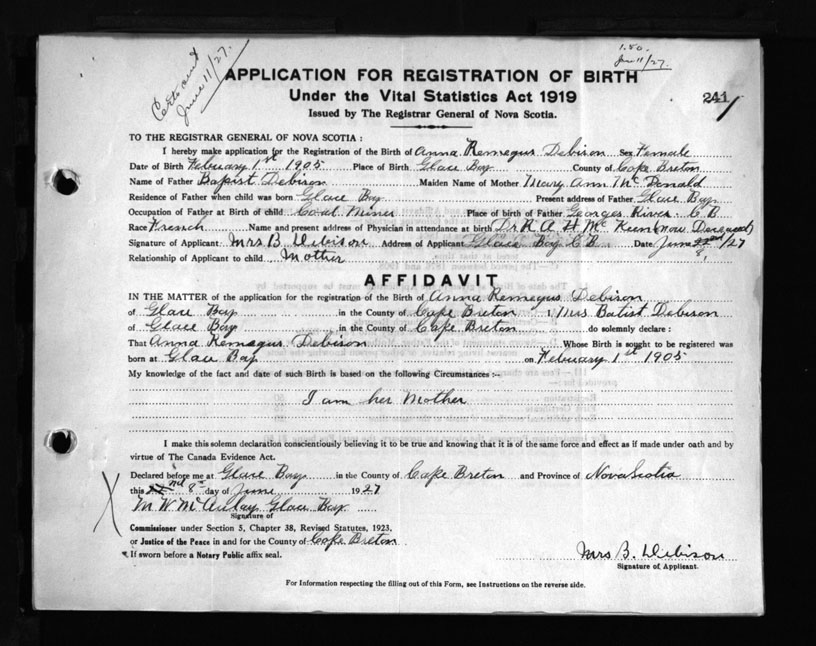 1.50.
June 11/27.
June 11/27.
APPLICATION FOR REGISTRATION OF BIRTH
Under the Vital Statistics Act 1919
241
Issued by The Registrar General of Nova Scotia.
TO THE REGISTRAR GENERAL OF NOVA SCOTIA :
I hereby make application for the Registration of the Birth of Anna Remegus Debison Sex Female
Date of Birth Febuary 1st 1905 Place of Birth Glace Bay County of Cape Breton
Name of Father Baptist Debison Maiden Name of Mother Mary Ann McDonald
Residence of Father when child was born Glace Bay Present address of Father Glace Bay
Occupation of Father at Birth of child Coal Miner Place of birth of Father Georges River C.B
Race French Name and present address of Physician in attendance at birth Dr R A H McKeen (now Deceased)
Signature of Applicant Mrs B. Debison Address of Applicant Glace Bay C.B. Date June 8, /27
Relationship of Applicant to child Mother
AFFIDAVIT
IN THE MATTER of the application for the registration of the Birth of Anna Remegus Debison
of Glace Bay in the County of Cape Breton I, Mrs Batist Debison
of Glace Bay in the County of Cape Breton do solemnly declare :
That Anna Remegus Debison Whose Birth is sought to be registered was
born at Glace Bay on Febuary 1st 1905
My knowledge of the fact and date of such Birth is based on the following Circumstances :—
I am her Mother
I make this solemn declaration conscientiously believing it to be true and knowing that it is of the same force and effect as if made under oath and by
virtue of The Canada Evidence Act.
Declared before me at Glace Bay in the County of Cape Breton and Province of Nova Scotia
this 8th day of June 1927
M W McAulay Glace Bay
Signature of
Commissioner under Section 5, Chapter 38, Revised Statutes, 1923.
or Justice of the Peace in and for the County of Cape Breton
If sworn before a Notary Public affix seal.
Mrs B. Debison
Signature of Applicant.
For Information respecting the filling out of this Form, see Instructions on the reverse side.